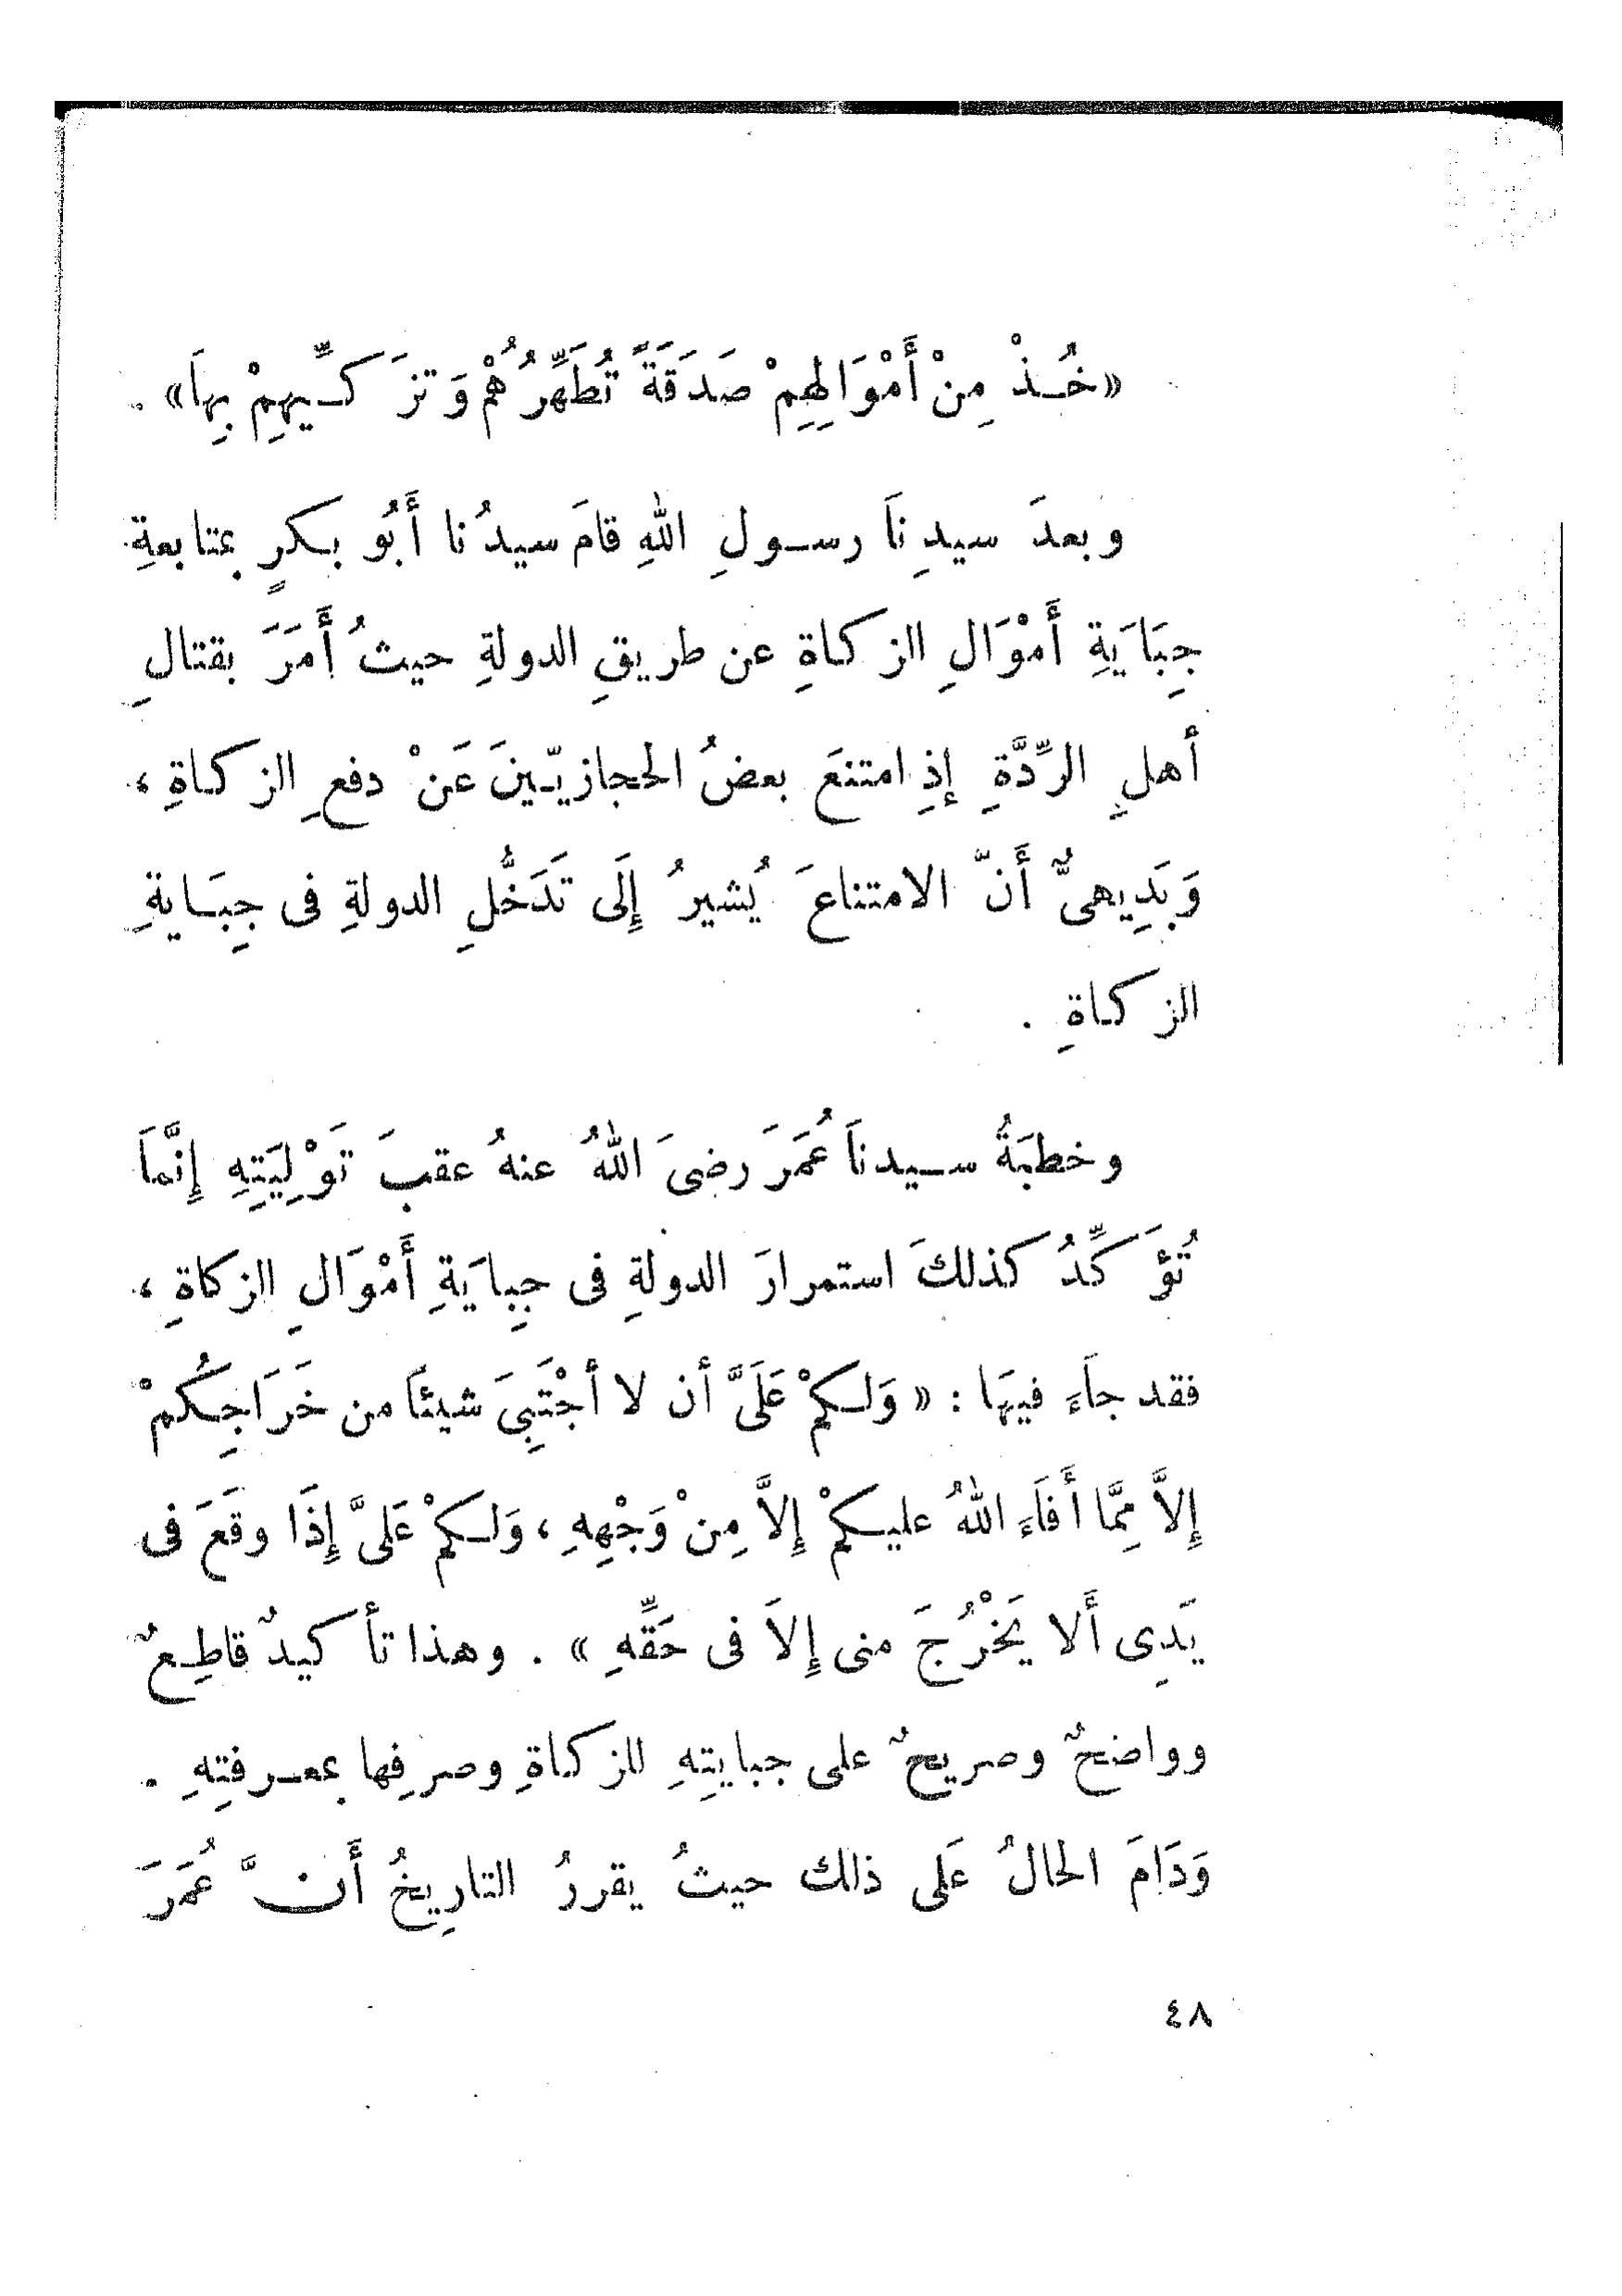 «خُـذْ مِنْ أَمْوَالِهِمْ صَدَقَةً تُطَهِّرُهُمْ وَتزَكِّيهِمْ بِهَا» .
وبعدَ سيدِنَا رسولِ اللهِ قامَ سيدُنا أَبُو بكرٍ بمتابعةِ
جِبَايَةِ أَمْوَالِ الزكاةِ عن طريقِ الدولةِ حيثُ أَمَرَ بقتالِ
أهلِ الرِّدَّةِ إذِ امتنعَ بعضُ الحجازيّينَ عَنْ دفعِ الزكاةِ ،
وَبَدِيهىٌّ أَنّ الامتناعَ يُشيرُ إِلَى تَدَخُّلِ الدولةِ فى جِبَايةِ
الزكاةِ .
وخطبَةُ سيدنَا عُمَرَ رضىَ اللهُ عنهُ عقبَ تَوْلِيَتِهِ إِنَّمَا
تُؤَكِّدُ كذلكَ استمرارَ الدولةِ فى جِبايَةِ أَمْوَالِ الزكاةِ ،
فقد جاَءَ فيهَا : « وَلكمْ عَلَىَّ أن لا أجْتَبِىَ شيئًا من خَرَاجِكُمْ
إِلاَّ مِمَّا أفَاءَ اللهُ عليكمْ إِلاَّ مِنْ وَجْهِهِ ، وَلكمْ عَلىَّ إِذَا وقَعَ فى
يَدِى أَلا يَخْرُجَ منى إِلاَ فى حَقِّهِ » . وهذا تأكيدٌ قاطِعٌ
وواضحٌ وصريحٌ على جبايتِهِ للزكاةِ وصرفِها بمعرفتِهِ .
وَدَامَ الحالُ عَلى ذلك حيثُ يقررُ التارِيخُ أَنَّ عُمَرَ
٤٨